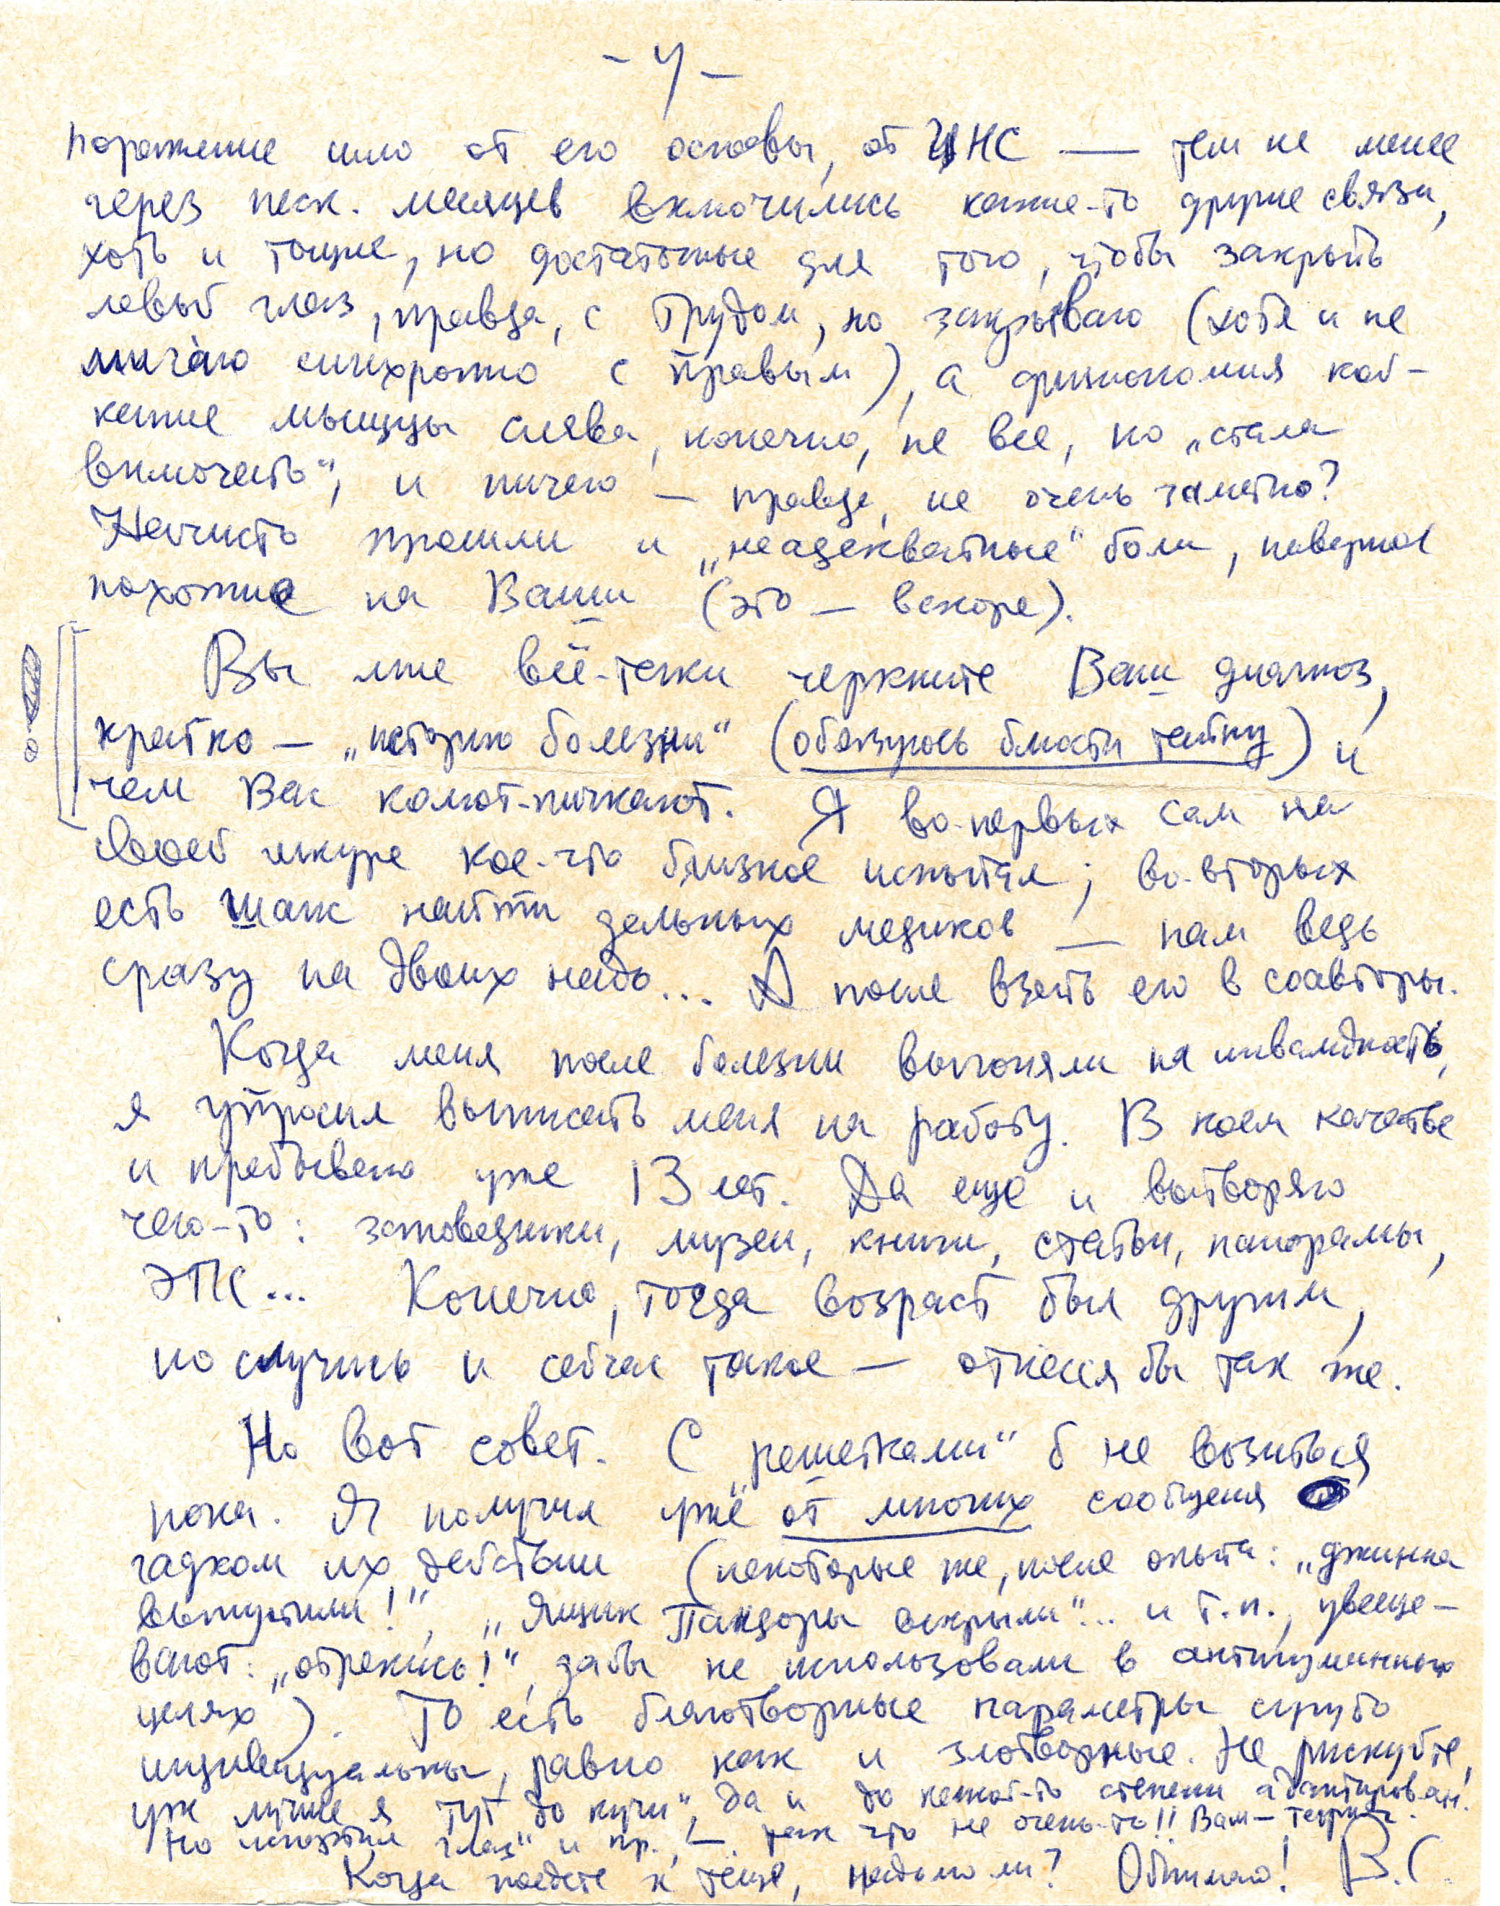 - 4 -
поражение шло от его основы, от ЦНС — тем не менее
через неск. месяцев включились какие-то другие связи,
хоть и тощие, но достаточные для того, чтобы закрыть
левый глаз, правда, с трудом, но закрываю (хотя и не
мигаю синхронно с правым), а физиономия кой-
какие мышцы слева, конечно, не все, но „стала
включать", и ничего — правда, не очень заметно?
Начисто прошли и „неадекватные" боли, наверное
похожие на Ваши (это — вскоре).
Вы мне всё-таки черкните Ваш диагноз,
кратко — „историю болезни" (обязуюсь блюсти тайну) и
чем Вас колют-пичкают. Я во-первых сам на
своей шкуре кое-что близкое испытал; во-вторых
есть шанс найти дельных медиков — нам ведь
сразу на двоих надо... А после взять его в соавторы.
Когда меня после болезни выгоняли на инвалидность,
я упросил выписать меня на работу. В коем качестве
и пребываю уже 13 лет. Да ещё и вытворяю
чего-то: заповедники, музеи, книги, статьи, панорамы,
ЭПС... Конечно, тогда возраст был другим,
но случись и сейчас такое — отнёсся бы так же.
Но вот совет. С „решетками" б не возиться
пока. Я получил уже от многих сообщения
гадком их действии (некоторые же, после опыта: „джинна
выпустили!", „Ящик Пандоры вскрыли"... и т.п., увеще-
вают: „отрекись!", дабы не использовали в антигуманных
целях). То есть благотворные параметры сугубо
индивидуальны, равно как и злотворные. Не рискуйте,
уж лучше я тут „до кучи", да и до какой-то степени адаптирован.
Но испортил „глаз" и пр. — так что не очень-то!! Ваш —
Когда поедете к тёще, надолго ли? Обнимаю! В.С.